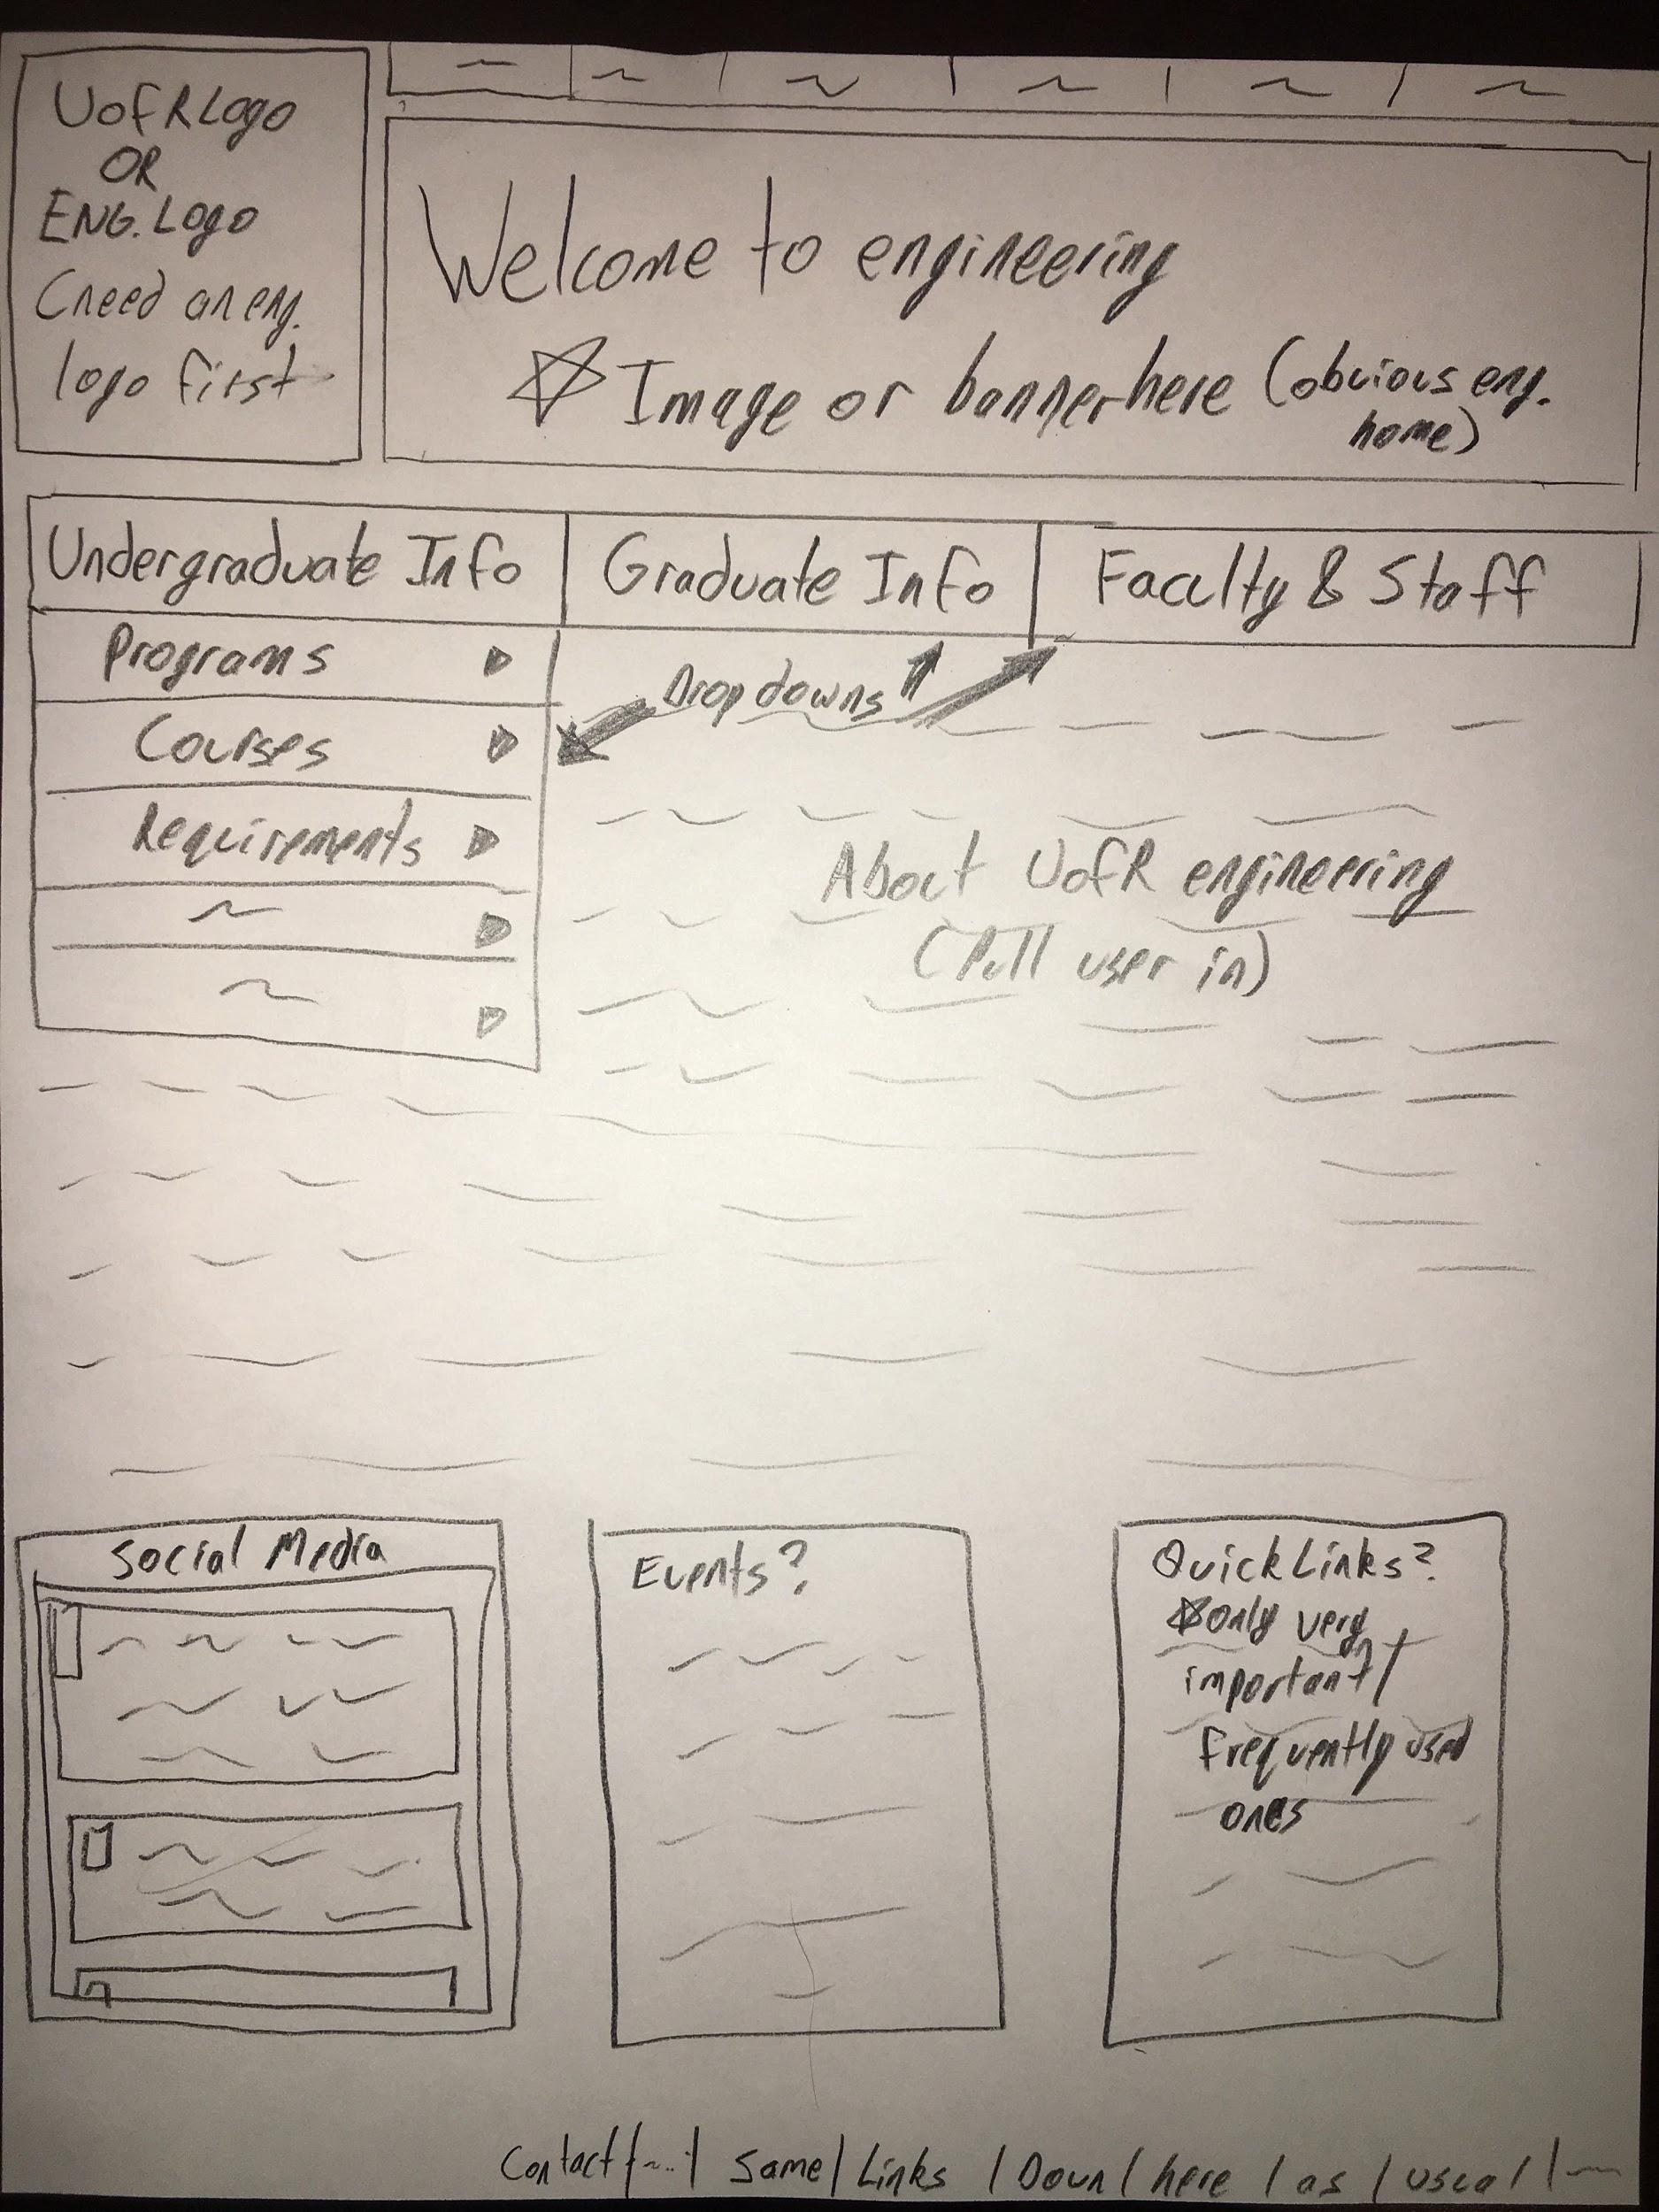 UofR Logo
OR
ENG. Logo
(need an eng.
logo first
Welcome to engineering
Image or banner here (obvious eng.
home)
Undergraduate Info
Graduate Info
Faculty & Staff
Programs
Courses
Requirements
Dropdowns
About UofR engineering
(Pull user in)
Social Media
Events?
Quick Links?
only very
important/
frequently used
ones
Contact / ~.. | Same / Links / Down / here / as / usual / ~